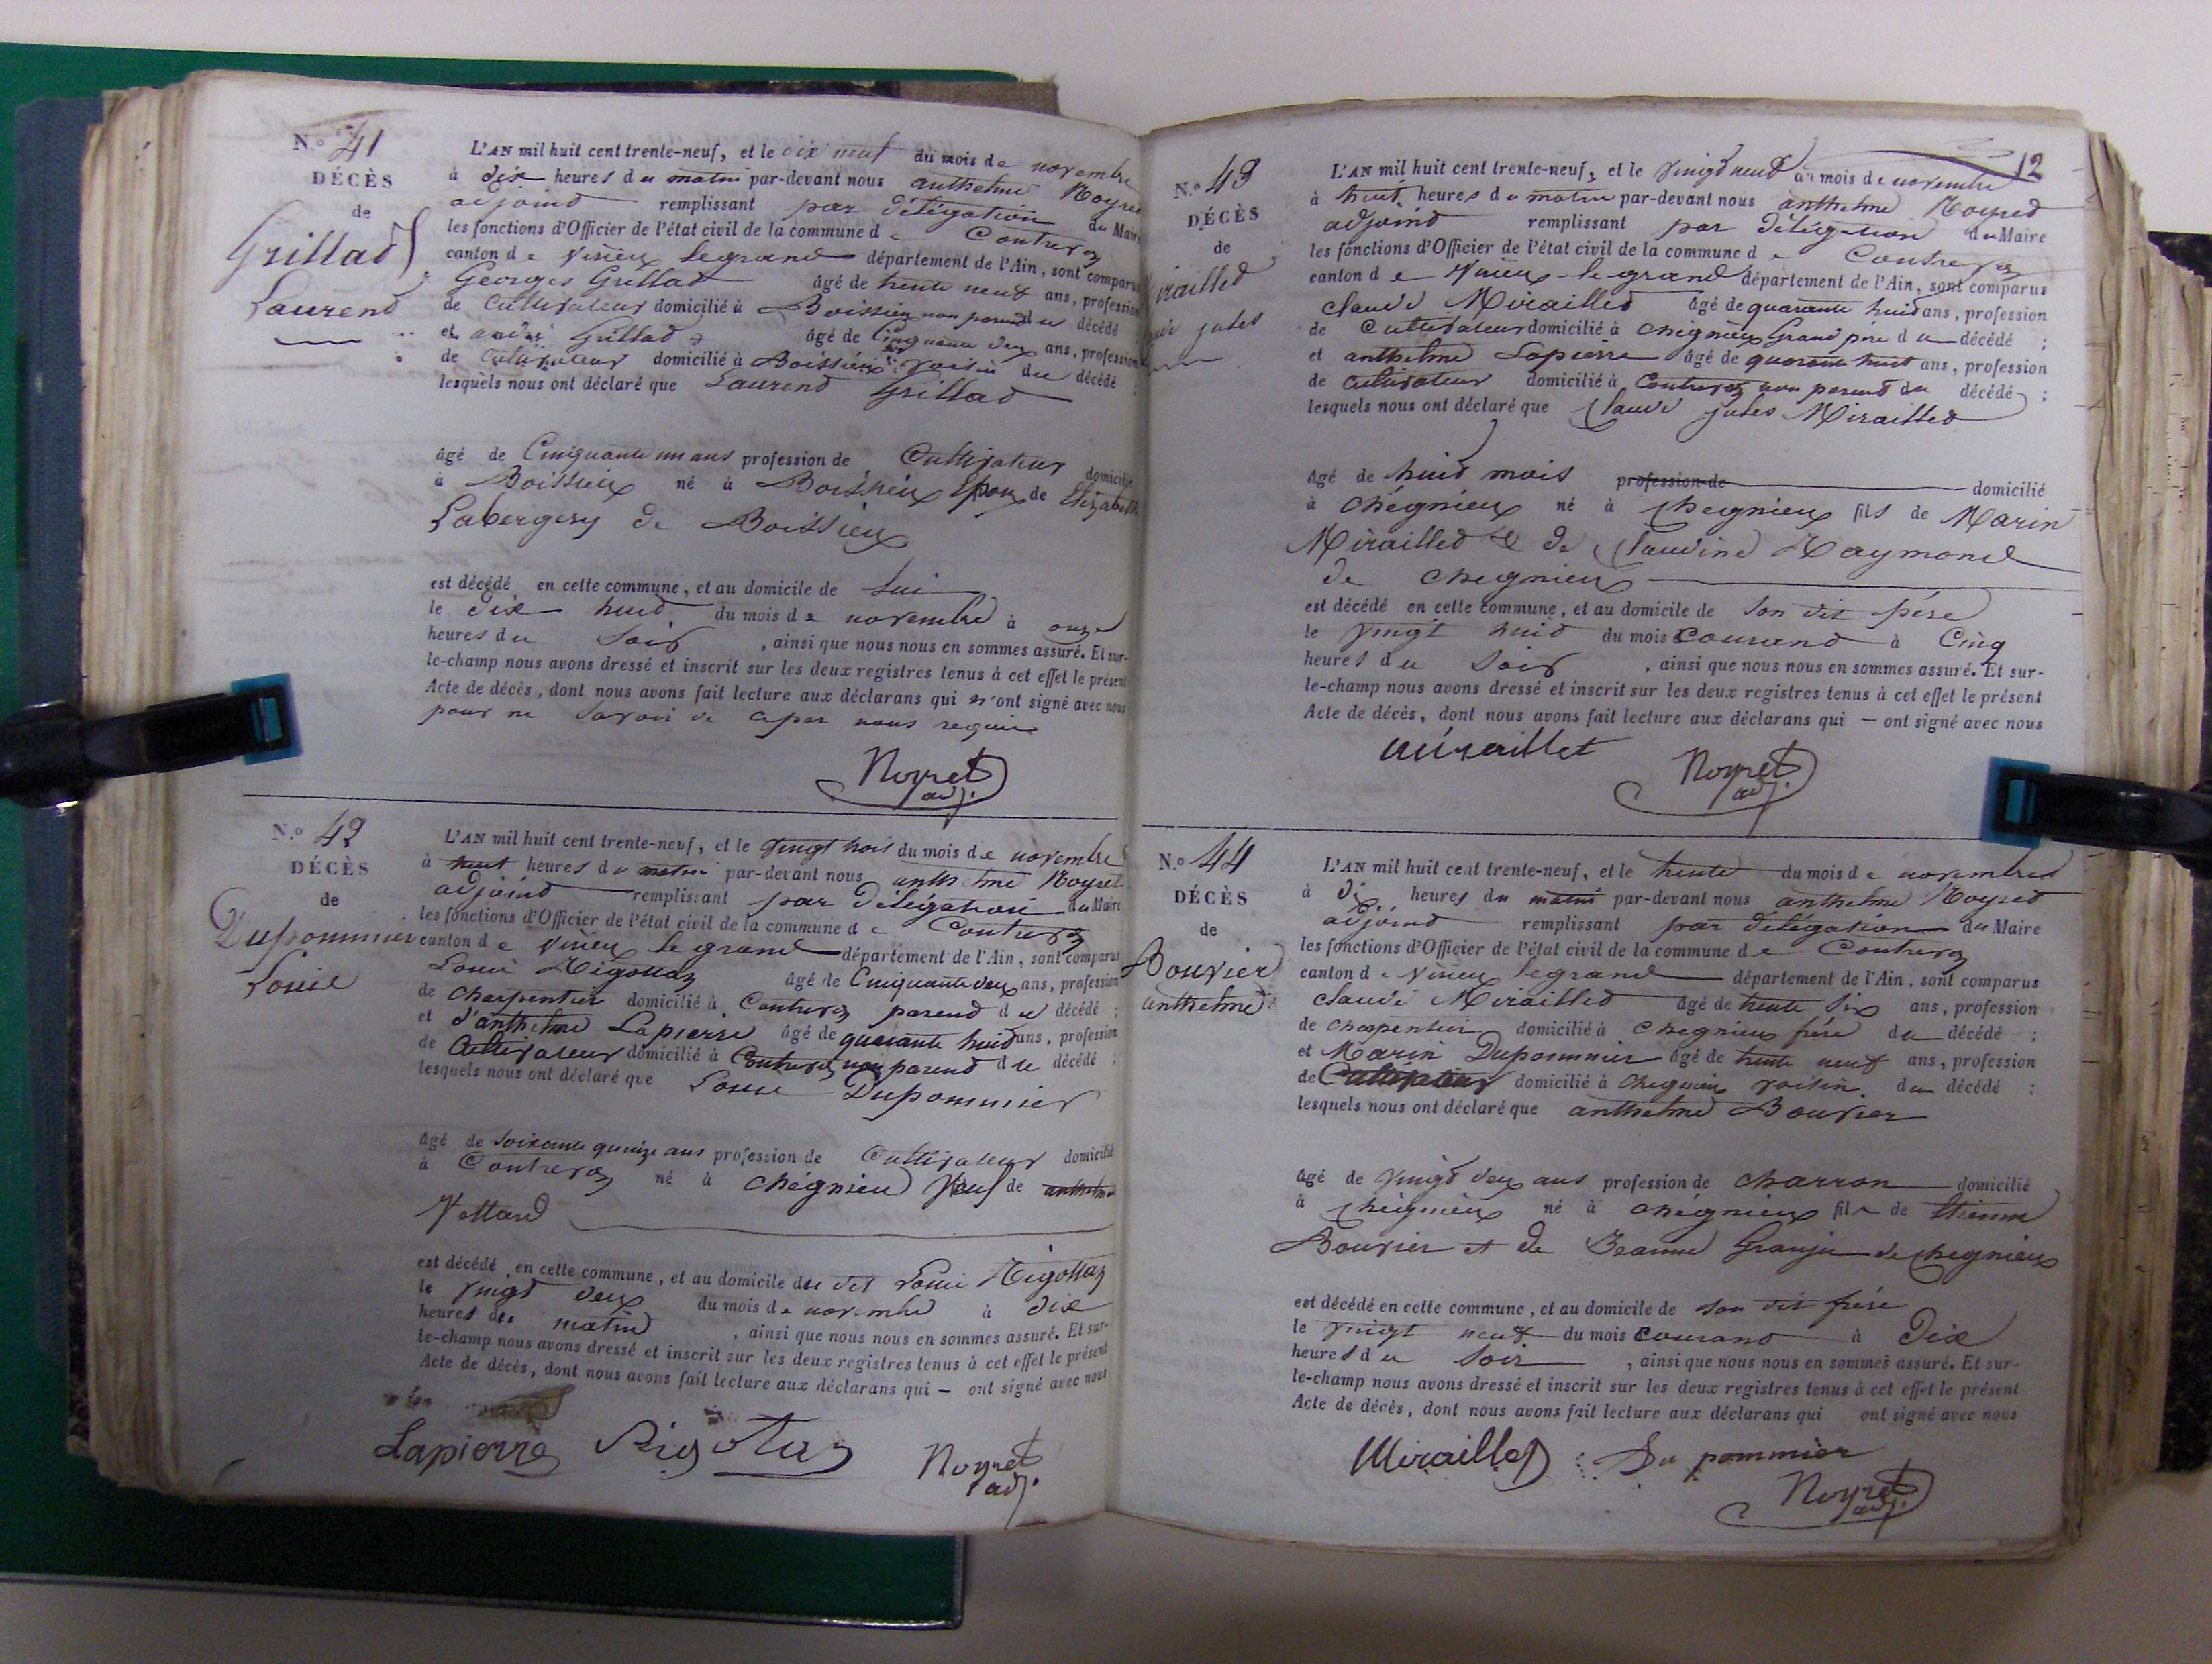 N.° 41
DÉCÈS
de
Grillad
Laurend
L'AN mil huit cent trente-neuf, et le dix neuf du mois de novembre
à dix heures du matin par-devant nous anthelme Noyred
adjoind remplissant par délégation du Maire
les fonctions d'Officier de l'état civil de la commune de Contrevoz
canton de Virieu legrand département de l'Ain, sont comparus
Georges Grillad âgé de trente neuf ans, profession
de Cultivateur domicilié à Boissieu non parend du décédé
et andré Grillad âgé de Cinquante deux ans, profession
de Cultivateur domicilié à Boissieu voisin du décédé ;
lesquels nous ont déclaré que Laurend Grillad
âgé de Cinquante un ans profession de Cultivateur domicilié
à Boissieu né à Boissieu Epoux de Elizabeth
Labergery de Boissieu
est décédé en cette commune, et au domicile de lui
le dix huid du mois de novembre à onze
heures du Soir, ainsi que nous nous en sommes assuré. Et sur-
le-champ nous avons dressé et inscrit sur les deux registres tenus à cet effet le présent
Acte de décès, dont nous avons fait lecture aux déclarans qui n'ont signé avec nous
pour ne savoir de ce par nous requis
Noyret
adj.
N.° 42
DÉCÈS
de
Dupommier
Louie
L'AN mil huit cent trente-neuf, et le vingt trois du mois de novembre
à huit heures du matin par-devant nous anthelme Noyret
adjoind remplissant par délégation du Maire
les fonctions d'Officier de l'état civil de la commune de Contrevoz
canton de Virieu le grand département de l'Ain, sont comparus
Louie Rigollaz âgé de Cinquante deux ans, profession
de Charpentier domicilié à Contrevoz parend du décédé ;
et d'anthelme Lapierre âgé de quarante huid ans, profession
de Cultivateur domicilié à Contrevoz non parend du décédé ;
lesquels nous ont déclaré que Louie Dupommier
âgé de soixante quinze ans profession de Cultivateur domicilié
à Contrevoz né à Chégnieu Veuf de anthelme
Vettard
est décédé en cette commune, et au domicile du dit Louie Rigollaz
le vingt deux du mois de novembre à dix
heures du matin, ainsi que nous nous en sommes assuré. Et sur-
le-champ nous avons dressé et inscrit sur les deux registres tenus à cet effet le présent
Acte de décès, dont nous avons fait lecture aux déclarans qui — ont signé avec nous
Lapierre Rigotaz Noyret
adj.
12
N.° 43
DÉCÈS
de
irailled
jules
L'AN mil huit cent trente-neuf, et le vingt neuf du mois de novembre
à huit heures du matin par-devant nous anthelme Noyred
adjoind remplissant par délégation du Maire
les fonctions d'Officier de l'état civil de la commune de Contrevoz
canton de Virieu-le-grand département de l'Ain, sont comparus
Claude Mirailled âgé de quarante huid ans, profession
de Cultivateur domicilié à Chegnieu Grand père du décédé ;
et anthelme Lapierre âgé de quarante huit ans, profession
de Cultivateur domicilié à Contrevoz non parend du décédé ;
lesquels nous ont déclaré que Claude jules Mirailled
âgé de huid mois profession de domicilié
à Chégnieu né à Chegnieu fils de Marin
Mirailled & de Claudine Raymond
de Chegnieu
est décédé en cette commune, et au domicile de son dit père
le vingt huid du mois courand à Cinq
heures du Soir, ainsi que nous nous en sommes assuré. Et sur-
le-champ nous avons dressé et inscrit sur les deux registres tenus à cet effet le présent
Acte de décès, dont nous avons fait lecture aux déclarans qui — ont signé avec nous
miraillet Noyret
adj.
N.° 44
DÉCÈS
de
Bouvier
anthelme
L'AN mil huit cent trente-neuf, et le trente du mois de novembre
à dix heures du matin par-devant nous anthelme Noyred
adjoind remplissant par délégation du Maire
les fonctions d'Officier de l'état civil de la commune de Contrevoz
canton de Virieu legrand département de l'Ain, sont comparus
Claude Mirailled âgé de trente six ans, profession
de Charpentier domicilié à Chegnieu frère du décédé ;
et Marin Dupommier âgé de trente neuf ans, profession
de Cultivateur domicilié à Chegnieu voisin du décédé ;
lesquels nous ont déclaré que anthelme Bouvier
âgé de vingt deux ans profession de Charron domicilié
à Chégnieu né à Chégnieu fils de Etienne
Bouvier et de Jeanne Granju de Chegnieu
est décédé en cette commune, et au domicile de son dit frère
le vingt neuf du mois courand à Dix
heures du Soir, ainsi que nous nous en sommes assuré. Et sur-
le-champ nous avons dressé et inscrit sur les deux registres tenus à cet effet le présent
Acte de décès, dont nous avons fait lecture aux déclarans qui ont signé avec nous
Miraillet Du pommier
Noyret
adj.